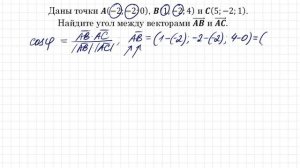 Даны точки A(−2; −2; 0), B(1; −2; 4) и C(5; −2; 1).
Найдите угол между векторами AB и AC.
cosφ = AB·AC / |AB|·|AC| , AB = (1−(−2); −2−(−2); 4−0) = (